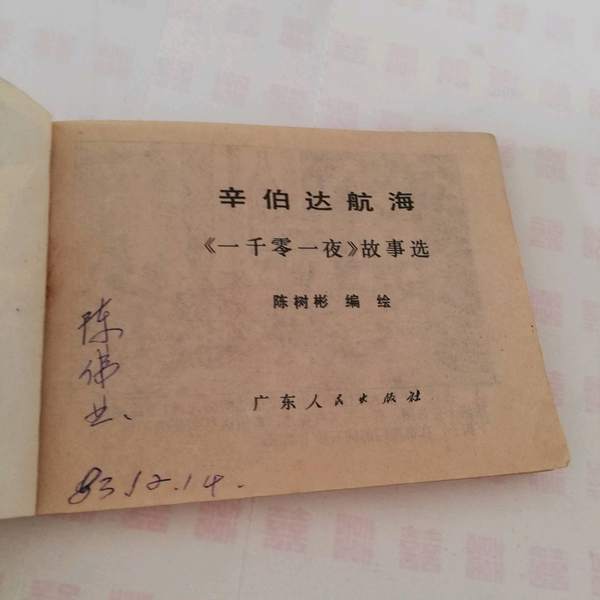 辛伯达航海
《一千零一夜》故事选
陈树彬 编绘
广东人民出版社
陈
伟
业.
83.12.14.